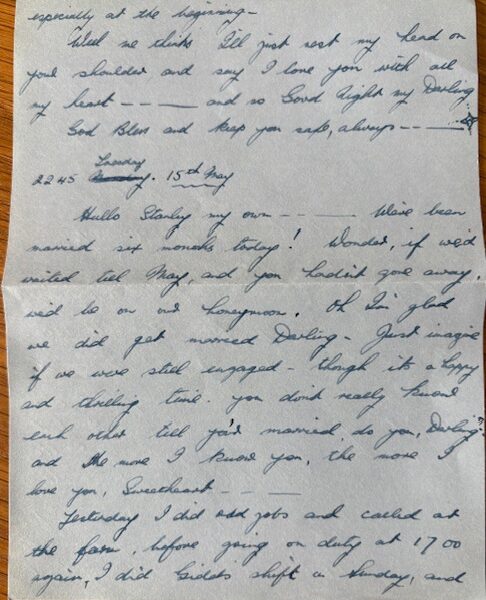 especially at the beginning -
Well me thinks I'll just rest my head on
your shoulder and say I love you with all
my heart - - - - and so Good Night my Darling
God Bless and keep you safe, always - - -
Tuesday
2245 15th May
Hullo Stanley my own - - - - We've been
married six months today! Wonder, if we'd
waited till May, and you hadn't gone away,
we'd be on our honeymoon. Oh I'm glad
we did get married Darling - Just imagine
if we were still engaged - though it's a happy
and thrilling time. you don't really know
each other till you'd married, do you, Darling?
and the more I know you, the more I
love you, Sweetheart - - -
Yesterday I did odd jobs and called at
the farm, before going on duty at 1700
again, I did shift on Sunday, and